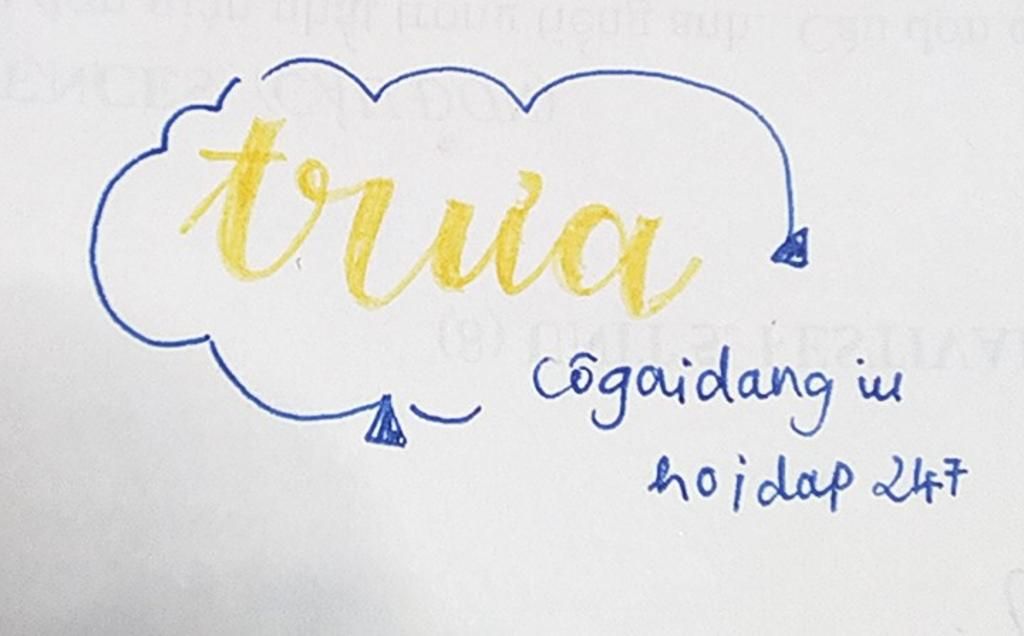 trưa
Côgaidang iu
hoidap 247